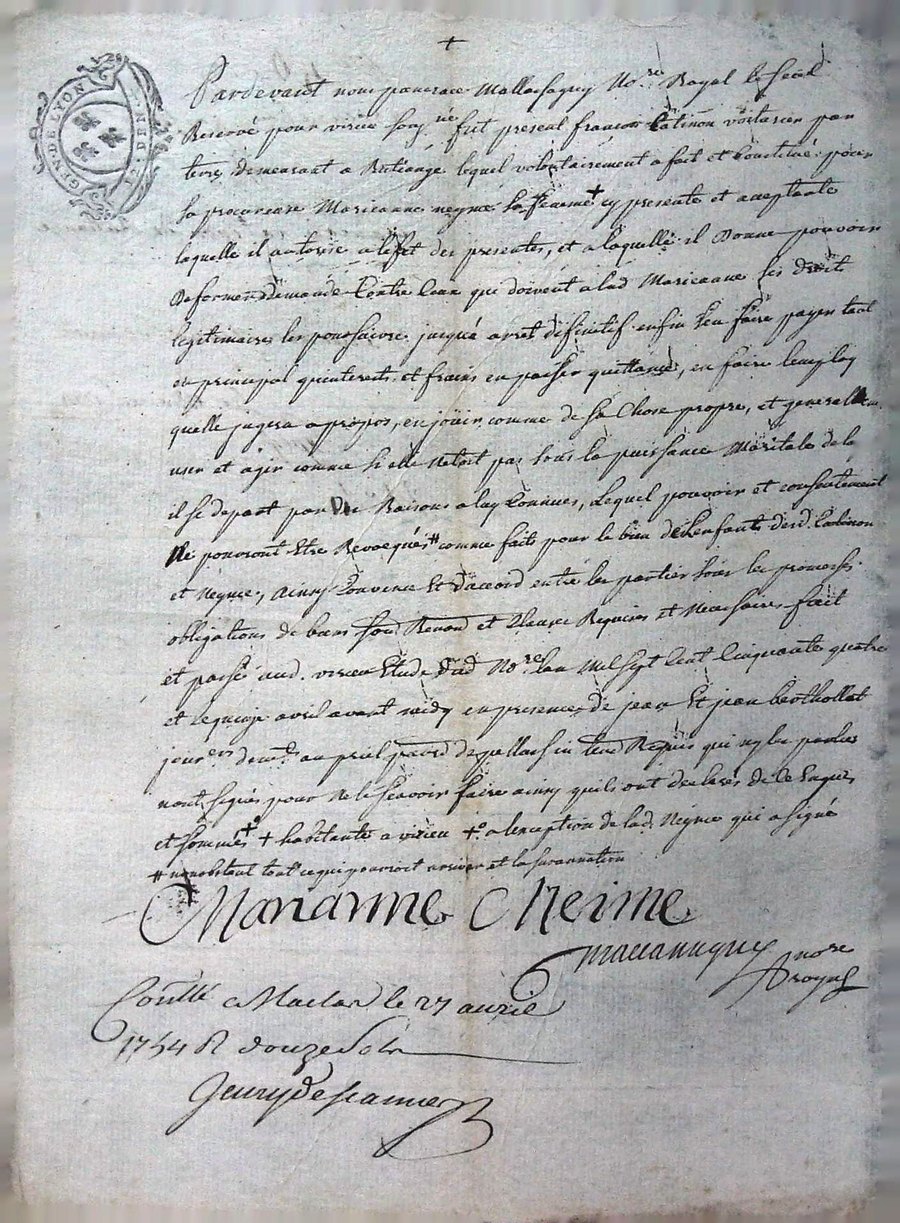 +
GEN. DE LYON
Pardevant nous pancrace No.re Royal le seel
Reservé pour virieu soug.ne fut present francois Catinon voiturier par
terre demeurant a lequel volontairement a fait et Constitué pour
sa procureuse Marieanne neyme sa feamme + cy presente et acceptante
laquelle il autorise a leffet des presentes, et a laquelle il Donne pouvoir
De former Demande Contre Ceux qui doivent a lad Marieanne ses droits
legitimaires les poursuivre jusqua arret difinitif enfin sen faire payer tant
en principal quinterets et frais en passer quittance, en faire lemploy
quelle jugera apropos, en jouir comme de sa Chose propre, et generallem.
user et agir comme si elle netoit pas sous la puissance Maritale de la
il se depart par Des Raisons a luy Connues, Lequel pouvoir et consentement
Ne pourront Etre Revocqués # comme faits pour le bien de lenfants desd. Catinon
et Neyme, ainsy Convenu Et Daccord entre les parties sous les promesses
obligations de biens Renond et Clauses Requises et Necessaires fait
et passé aud. virieu Etude dud No.re lan Mil sept Cent Cinquante quatre
et le quinze avril avant midy en presence de jean Et jean berthollat
jour.ers dem.ts au de pellussin temo. Requis qui ny les parties
nont signés pour Ne le scavoir faire ainsy quils ont declarés de ce Enquis
et sommés +° + habitante a virieu +° a lexception de lad. Neyme qui a signé
# nonobstant tout ce qui pourroit arriver et la surannation
Marianne Neime
no.re
royal
Con.llé a Maclas le 27 avril
1754 R douze sols